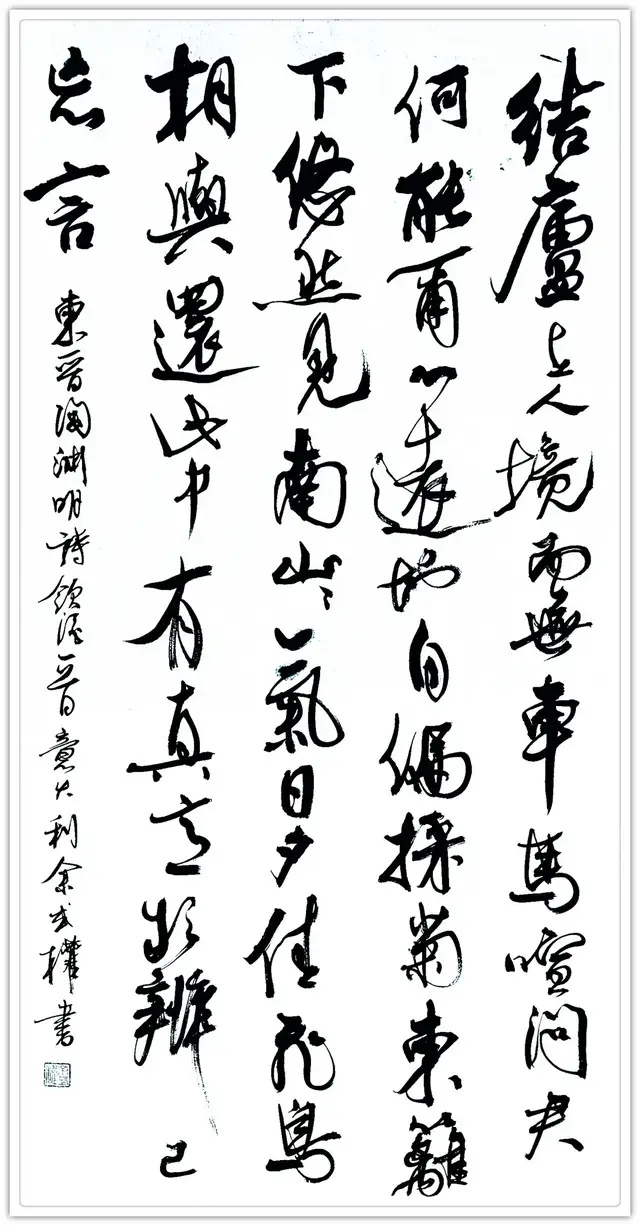 結廬在人境而無車馬喧問君
何能爾心遠地自偏採菊東籬
下悠然見南山々氣日夕佳飛鳥
相與還此中有真意欲辨已
忘言 東晉陶淵明詩飲酒一首意大利余武權書